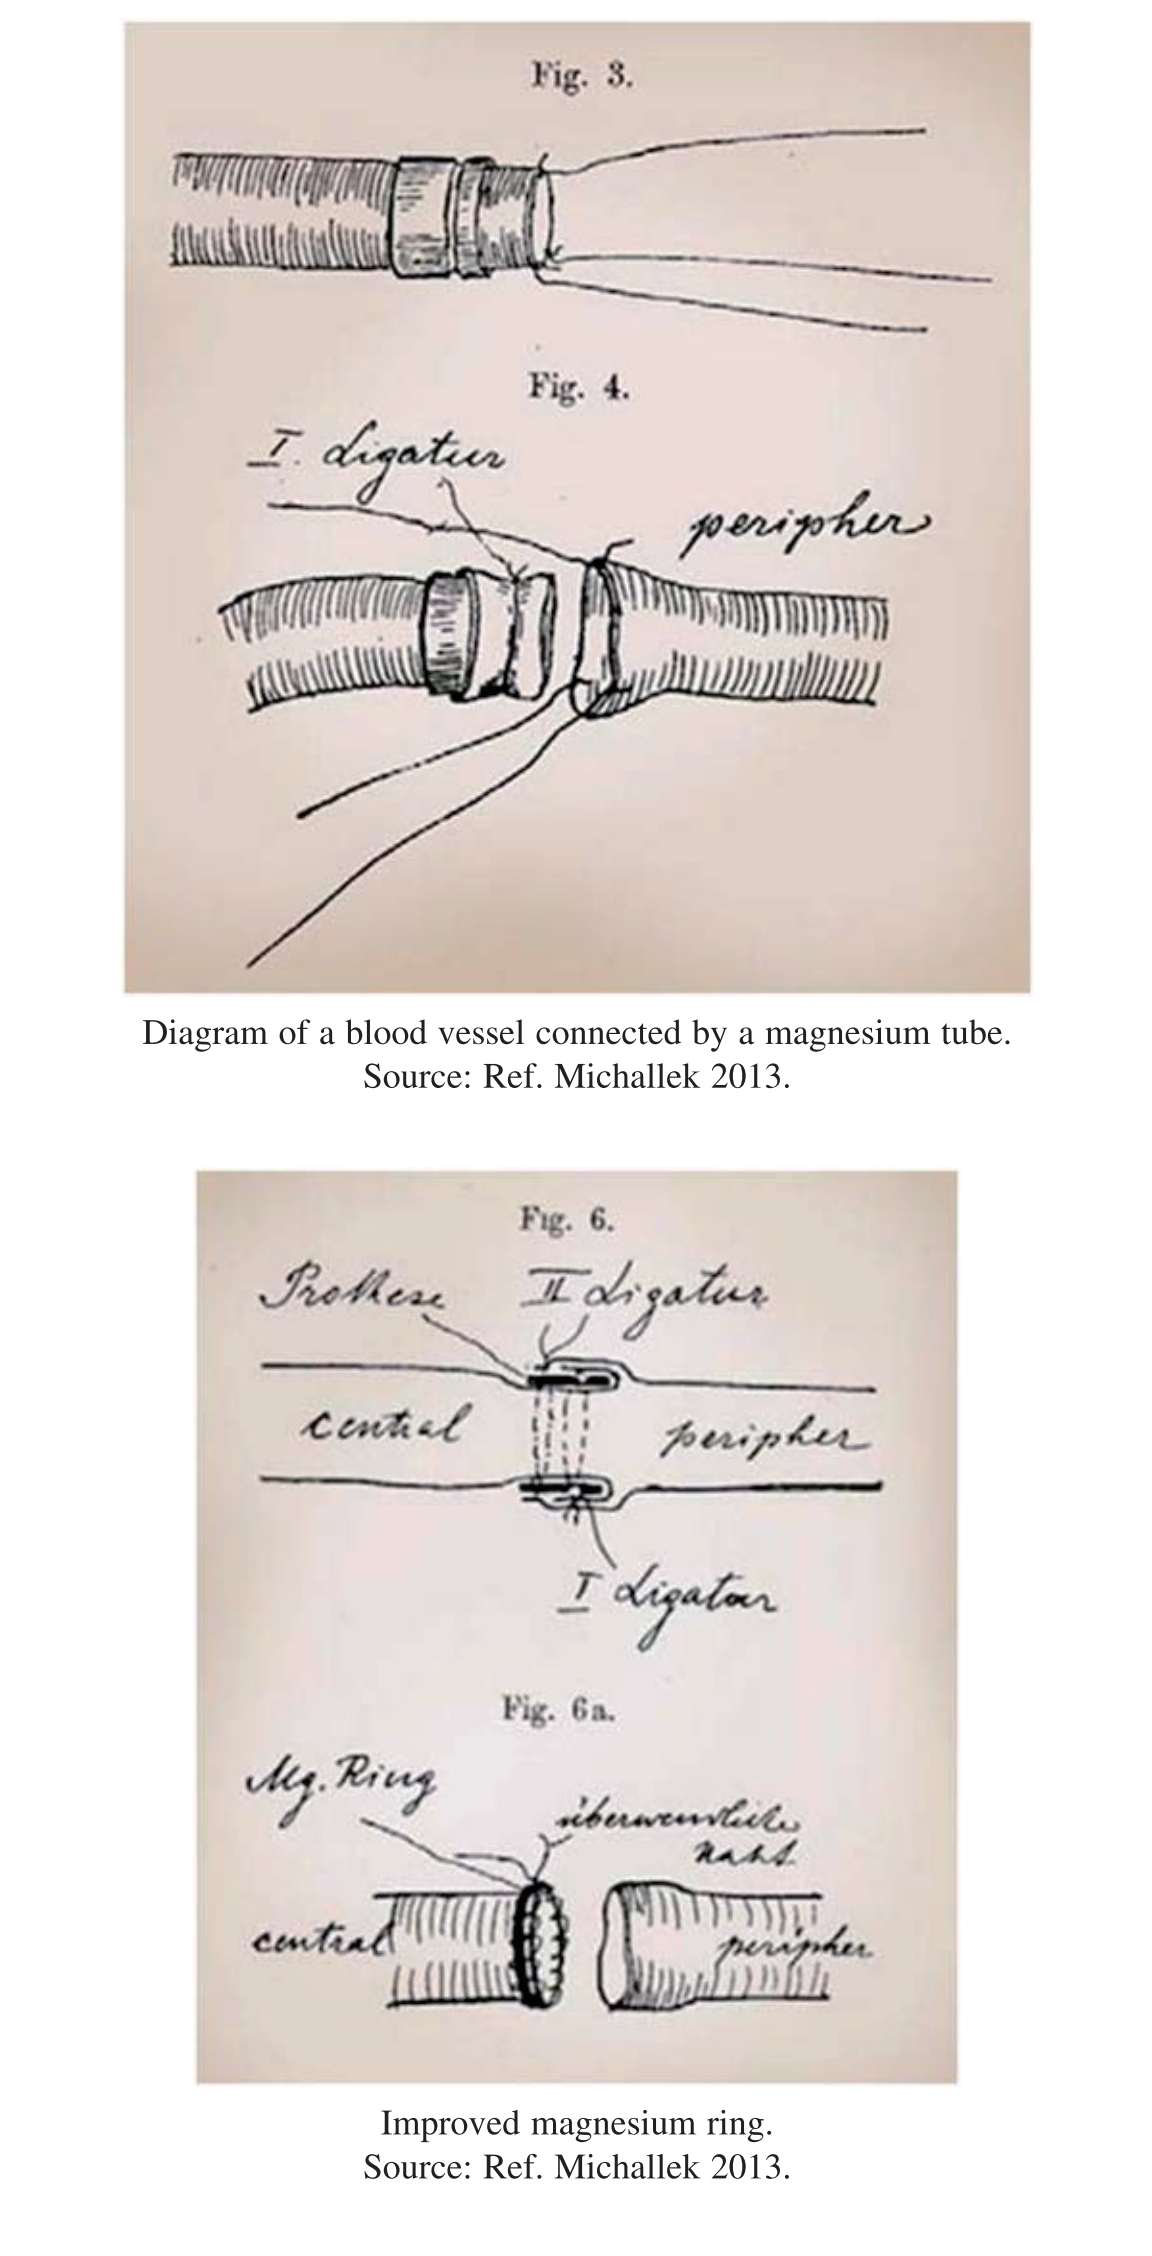 Fig. 3.
Fig. 4.
I. Ligatur
peripher
Diagram of a blood vessel connected by a magnesium tube.
Source: Ref. Michallek 2013.
Fig. 6.
Prothese
II Ligatur
central
peripher
I Ligatur
Fig. 6a.
Mg. Ring
überwendliche
Naht
central
peripher
Improved magnesium ring.
Source: Ref. Michallek 2013.